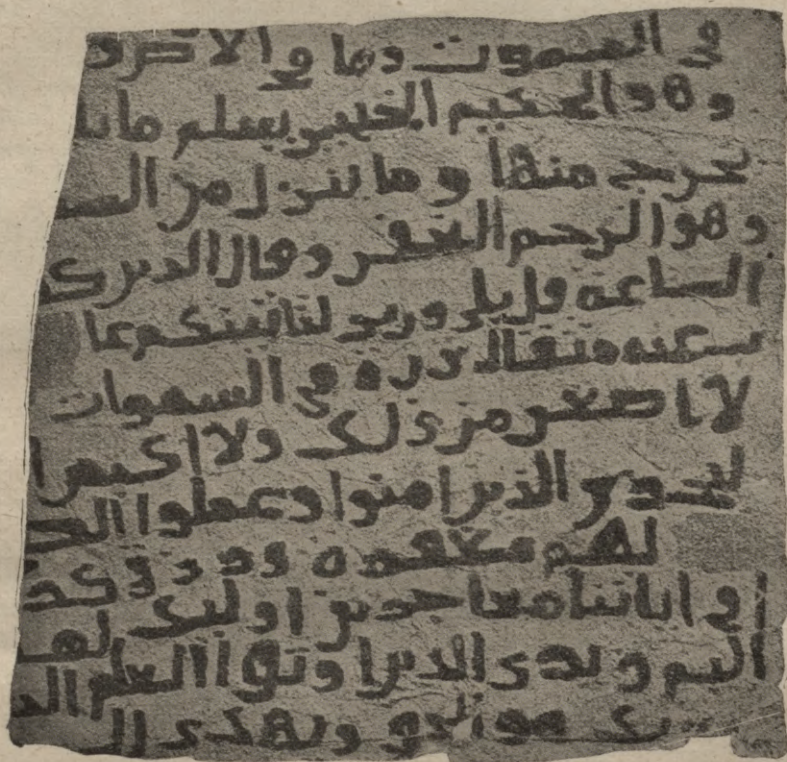 في السموت وما في الارض
وهو الحكيم الخبير يعلم ما يلـ
يخرج منها وما ينزل من السـ
وهو الرحيم الغفر وقال الذين كـ
الساعه قل بلى وربي لتاتينكم عا
ـب عنه مثقال ذره في السموات
لا اصغر من ذلك ولا اكبر ا
ليجزي الذين امنوا وعملوا الصـ
لهم مغفره ورزق كر
في اياتنا معاجزين اوليك لهم
اليم ويرى الذين اوتوا العلم الذ
ـك هو الحق ويهدي الى